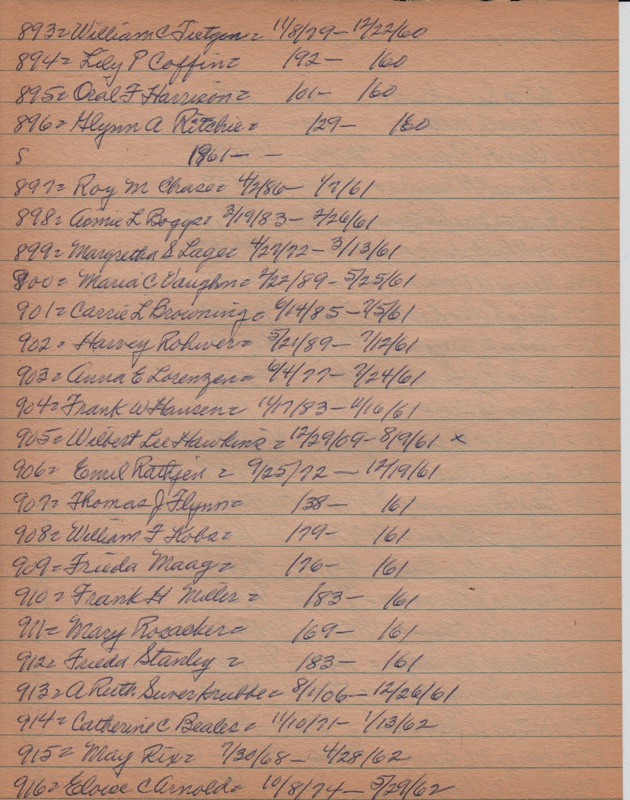 893= William C Tietgen= 11/8/79- 12/22/60
894= Lily P Coffin= 192- 160
895= Oral F Harrison= 101- 160
896= Glynn A Ritchie= 129- 160
S 1961- -
897= Roy M Chase= 4/2/86- 1/7/61
898= L Boggs= 3/19/83- 2/26/61
899= Margretha S Lage= 4/27/72- 3/13/61
900= Maria C Vaughn= 2/22/89- 5/25/61
901= Carrie L Browning= 6/14/85- 7/5/61
902= Harvey Rohwer= 5/21/89- 7/12/61
903= Anna E Lorenzen= 6/4/77- 7/24/61
904= Frank W Hansen= 11/17/83- 4/16/61
905= Wilbert Lee Hawkins= 12/29/09- 8/9/61 x
906= Emil Rathjen = 9/25/72 - 12/19/61
907= Thomas J Flynn= 138- 161
908= William F Kobs= 179- 161
909= Frieda Maag= 176- 161
910= Frank H Miller= 183- 161
911= Mary Rosacker= 169- 161
912= Frieda Stanley = 183- 161
913= A Ruth Suverkrubbe= 8/1/06- 12/26/61
914= Catherine C Beales= 11/10/71- 1/13/62
915= May Rix= 7/30/68- 4/28/62
916= Eloise C Arnold= 10/8/74- 5/29/62